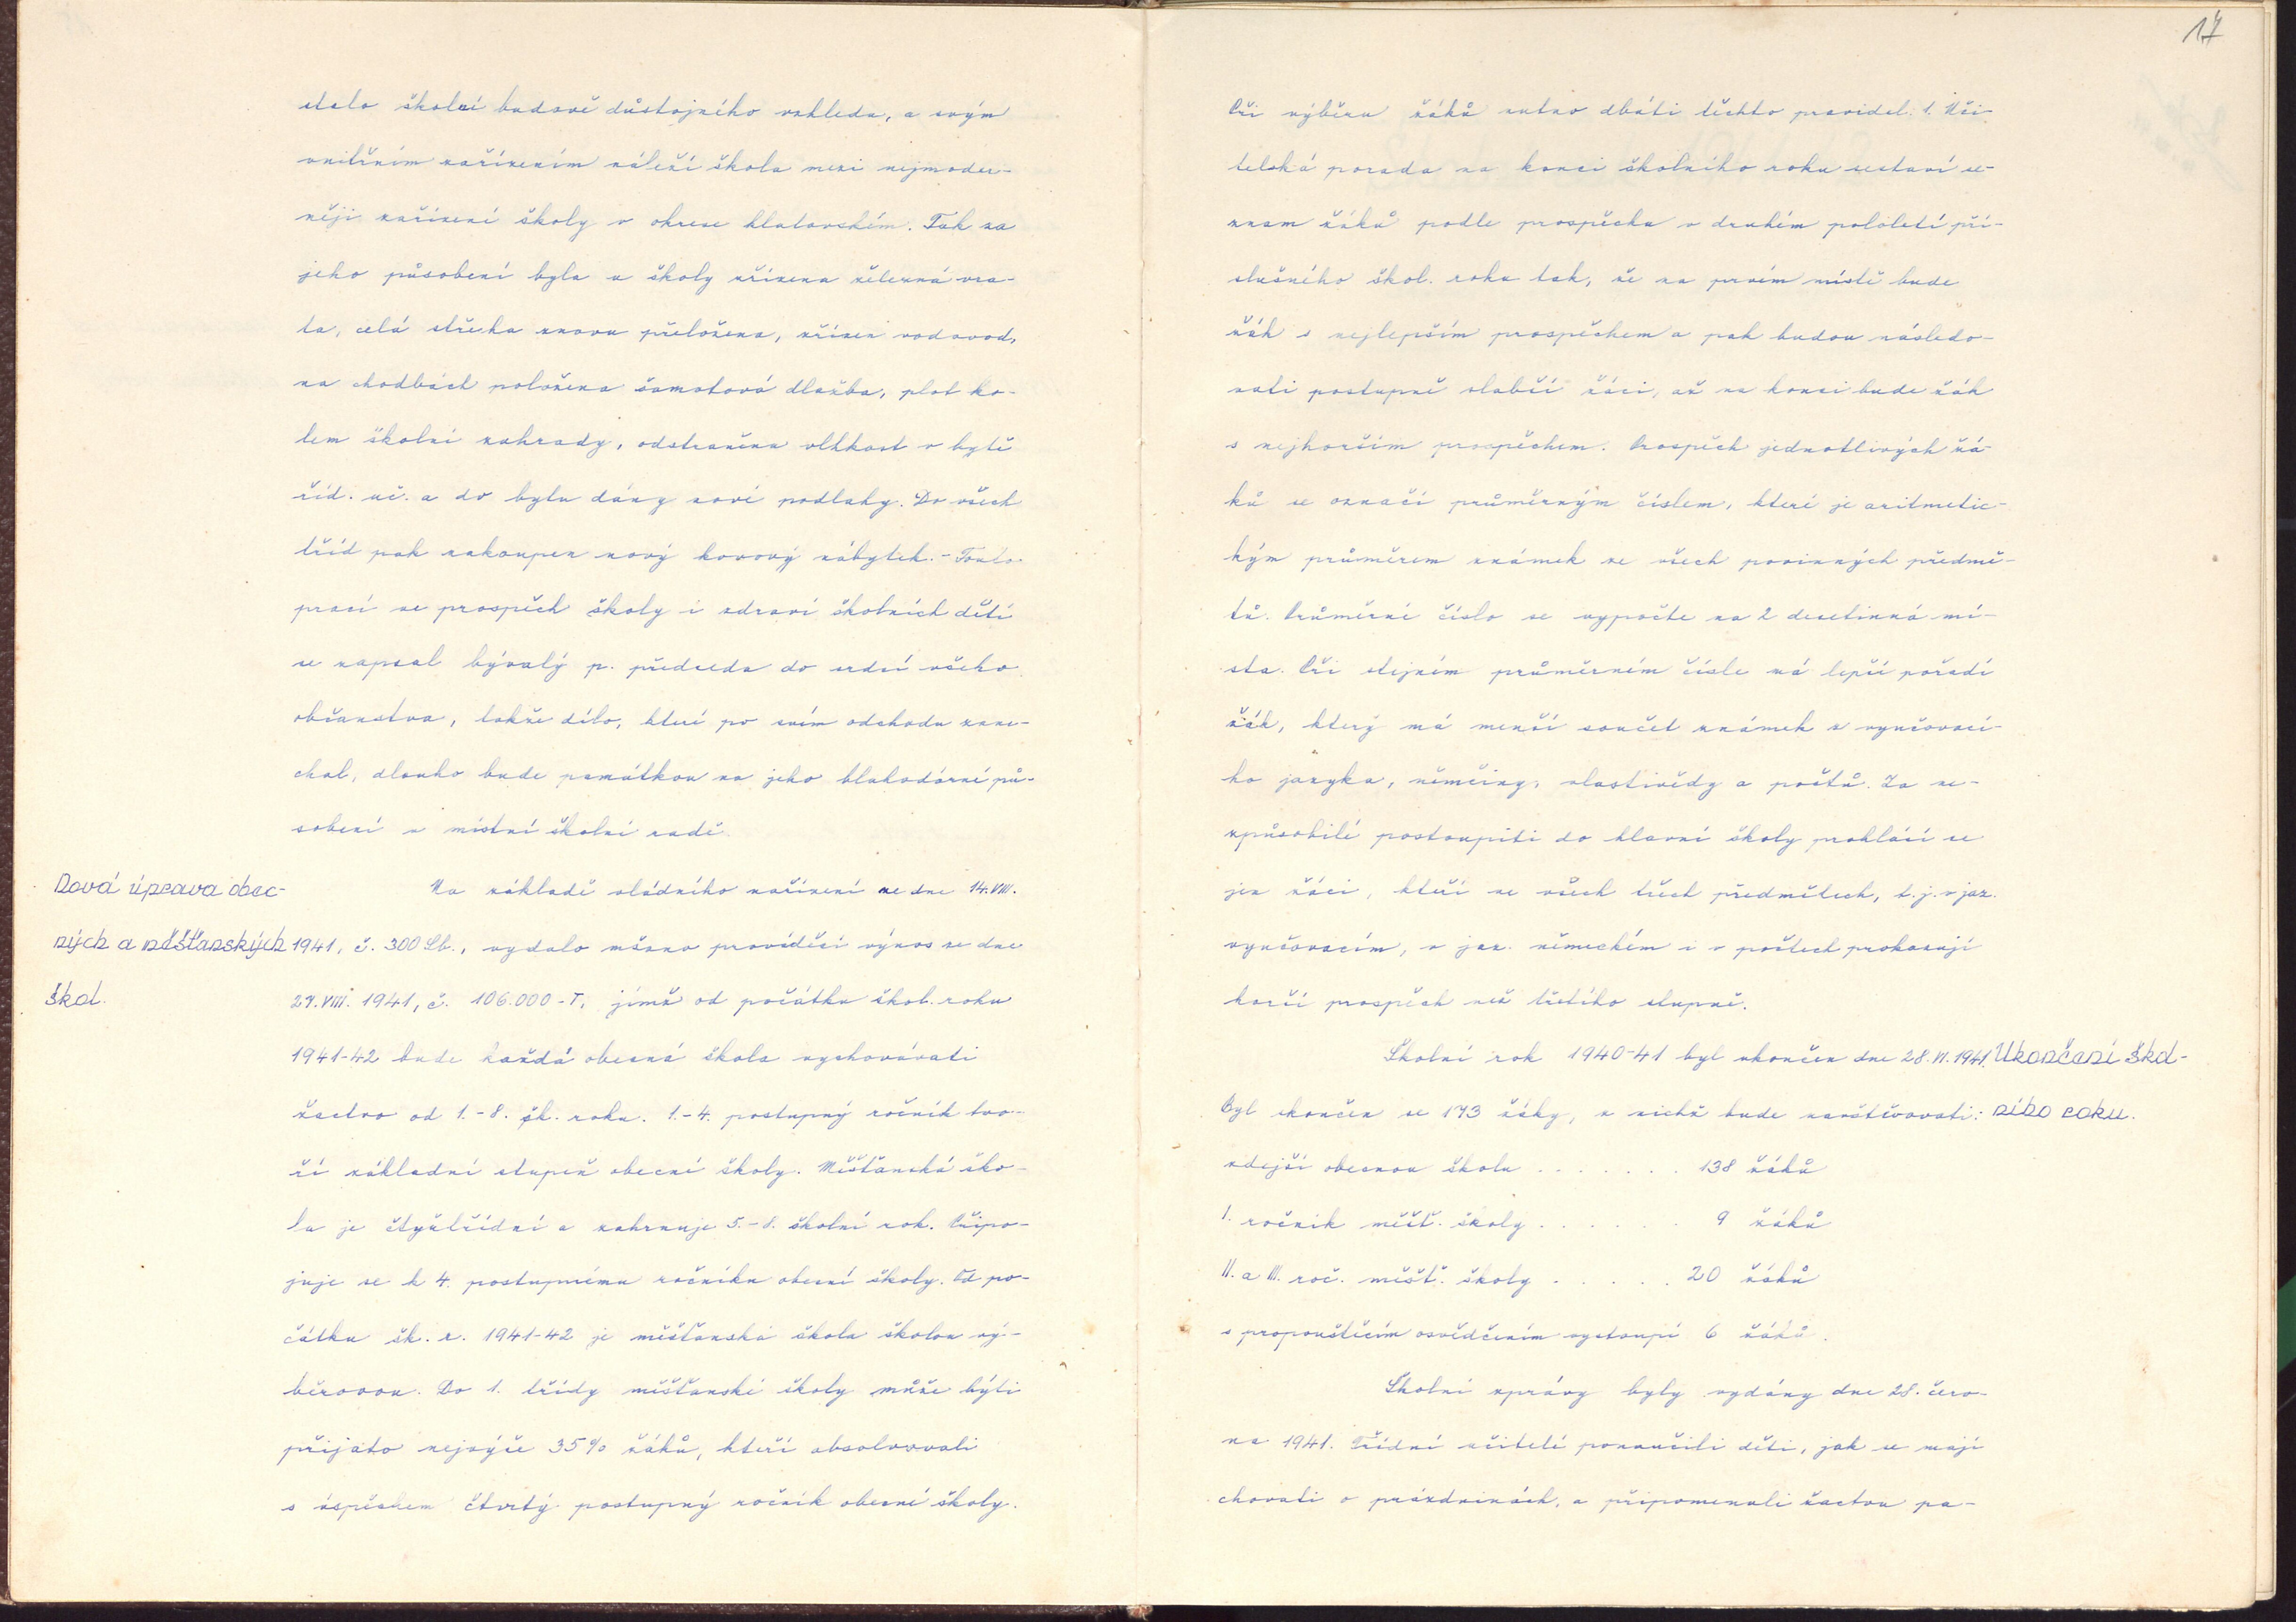 stalo školní budově důstojného vzhledu, a svým
vnitřním zařízením náleží škola mezi nejmoder-
něji zařízené školy v okrese klatovském. Tak za
jeho působení byla u školy zřízena železná vra-
ta, celá střecha znovu přeložena, zřízen vodovod,
na chodbách položena šamotová dlažba, plot ko-
lem školní zahrady, odstraněna vlhkost v bytě
říd. uč. a do bytu dány nové podlahy. Do všech
tříd pak zakoupen nový kovový nábytek. - Touto
prací ve prospěch školy i zdraví školních dětí
se zapsal bývalý p. předseda do srdcí všeho
občanstva, takže dílo, které po svém odchodu zane-
chal, dlouho bude památkou na jeho blahodárné pů-
sobení v místní školní radě.
Nová úprava obec-
ných a měšťanských
škol.
Na základě vládního nařízení ze dne 14. VIII.
1941, č. 300 Sb., vydalo mšano prováděcí výnos ze dne
27. VIII. 1941, č. 106.000-I, jímž od počátku škol. roku
1941-42 bude každá obecná škola vychovávati
žactvo od 1.-8. šk. roku. 1.-4. postupný ročník tvo-
ří základní stupeň obecné školy. Měšťanská ško-
la je čtyřtřídní a zahrnuje 5.-8. školní rok. Připo-
juje se k 4. postupnému ročníku obecné školy. Od po-
čátku šk. r. 1941-42 je měšťanská škola školou vý-
běrovou. Do 1. třídy měšťanské školy může býti
přijato nejvýše 35% žáků, kteří absolvovali
s úspěchem čtvrtý postupný ročník obecné školy.
17
Při výběru žáků nutno dbáti těchto pravidel: 1. Uči-
telská porada na konci školního roku sestaví se-
znam žáků podle prospěchu v druhém pololetí pří-
slušného škol. roku tak, že na prvém místě bude
žák s nejlepším prospěchem a pak budou následo-
vati postupně slabší žáci, až na konci bude žák
s nejhorším prospěchem. Prospěch jednotlivých žá-
ků se označí průměrným číslem, které je aritmetic-
kým průměrem známek ze všech povinných předmě-
tů. Průměrné číslo se vypočte na 2 desetinná mí-
sta. Při stejném průměrném čísle má lepší pořadí
žák, který má menší součet známek z vyučovací-
ho jazyka, němčiny, vlastivědy a počtů. Za ne-
způsobilé postoupiti do hlavní školy prohlásí se
jen žáci, kteří ve všech třech předmětech, t. j. v jaz.
vyučovacím, v jaz. německém i v počtech prokazují
horší prospěch než třetího stupně.
Školní rok 1940-41 byl ukončen dne 28. VI. 1941. Ukončení škol-
Byl skončen se 173 žáky, z nichž bude navštěvovati: ního roku.
zdejší obecnou školu . . . . . . . 138 žáků
I. ročník měšť. školy . . . . . . 9 žáků
II. a III. roč. měšť. školy . . . . . 20 žáků
s propouštěcím osvědčením vystoupí 6 žáků.
Školní zprávy byly vydány dne 28. červ-
na 1941. Třídní učitelé ponaučili děti, jak se mají
chovati o prázdninách, a připomenuli žactvu pa-